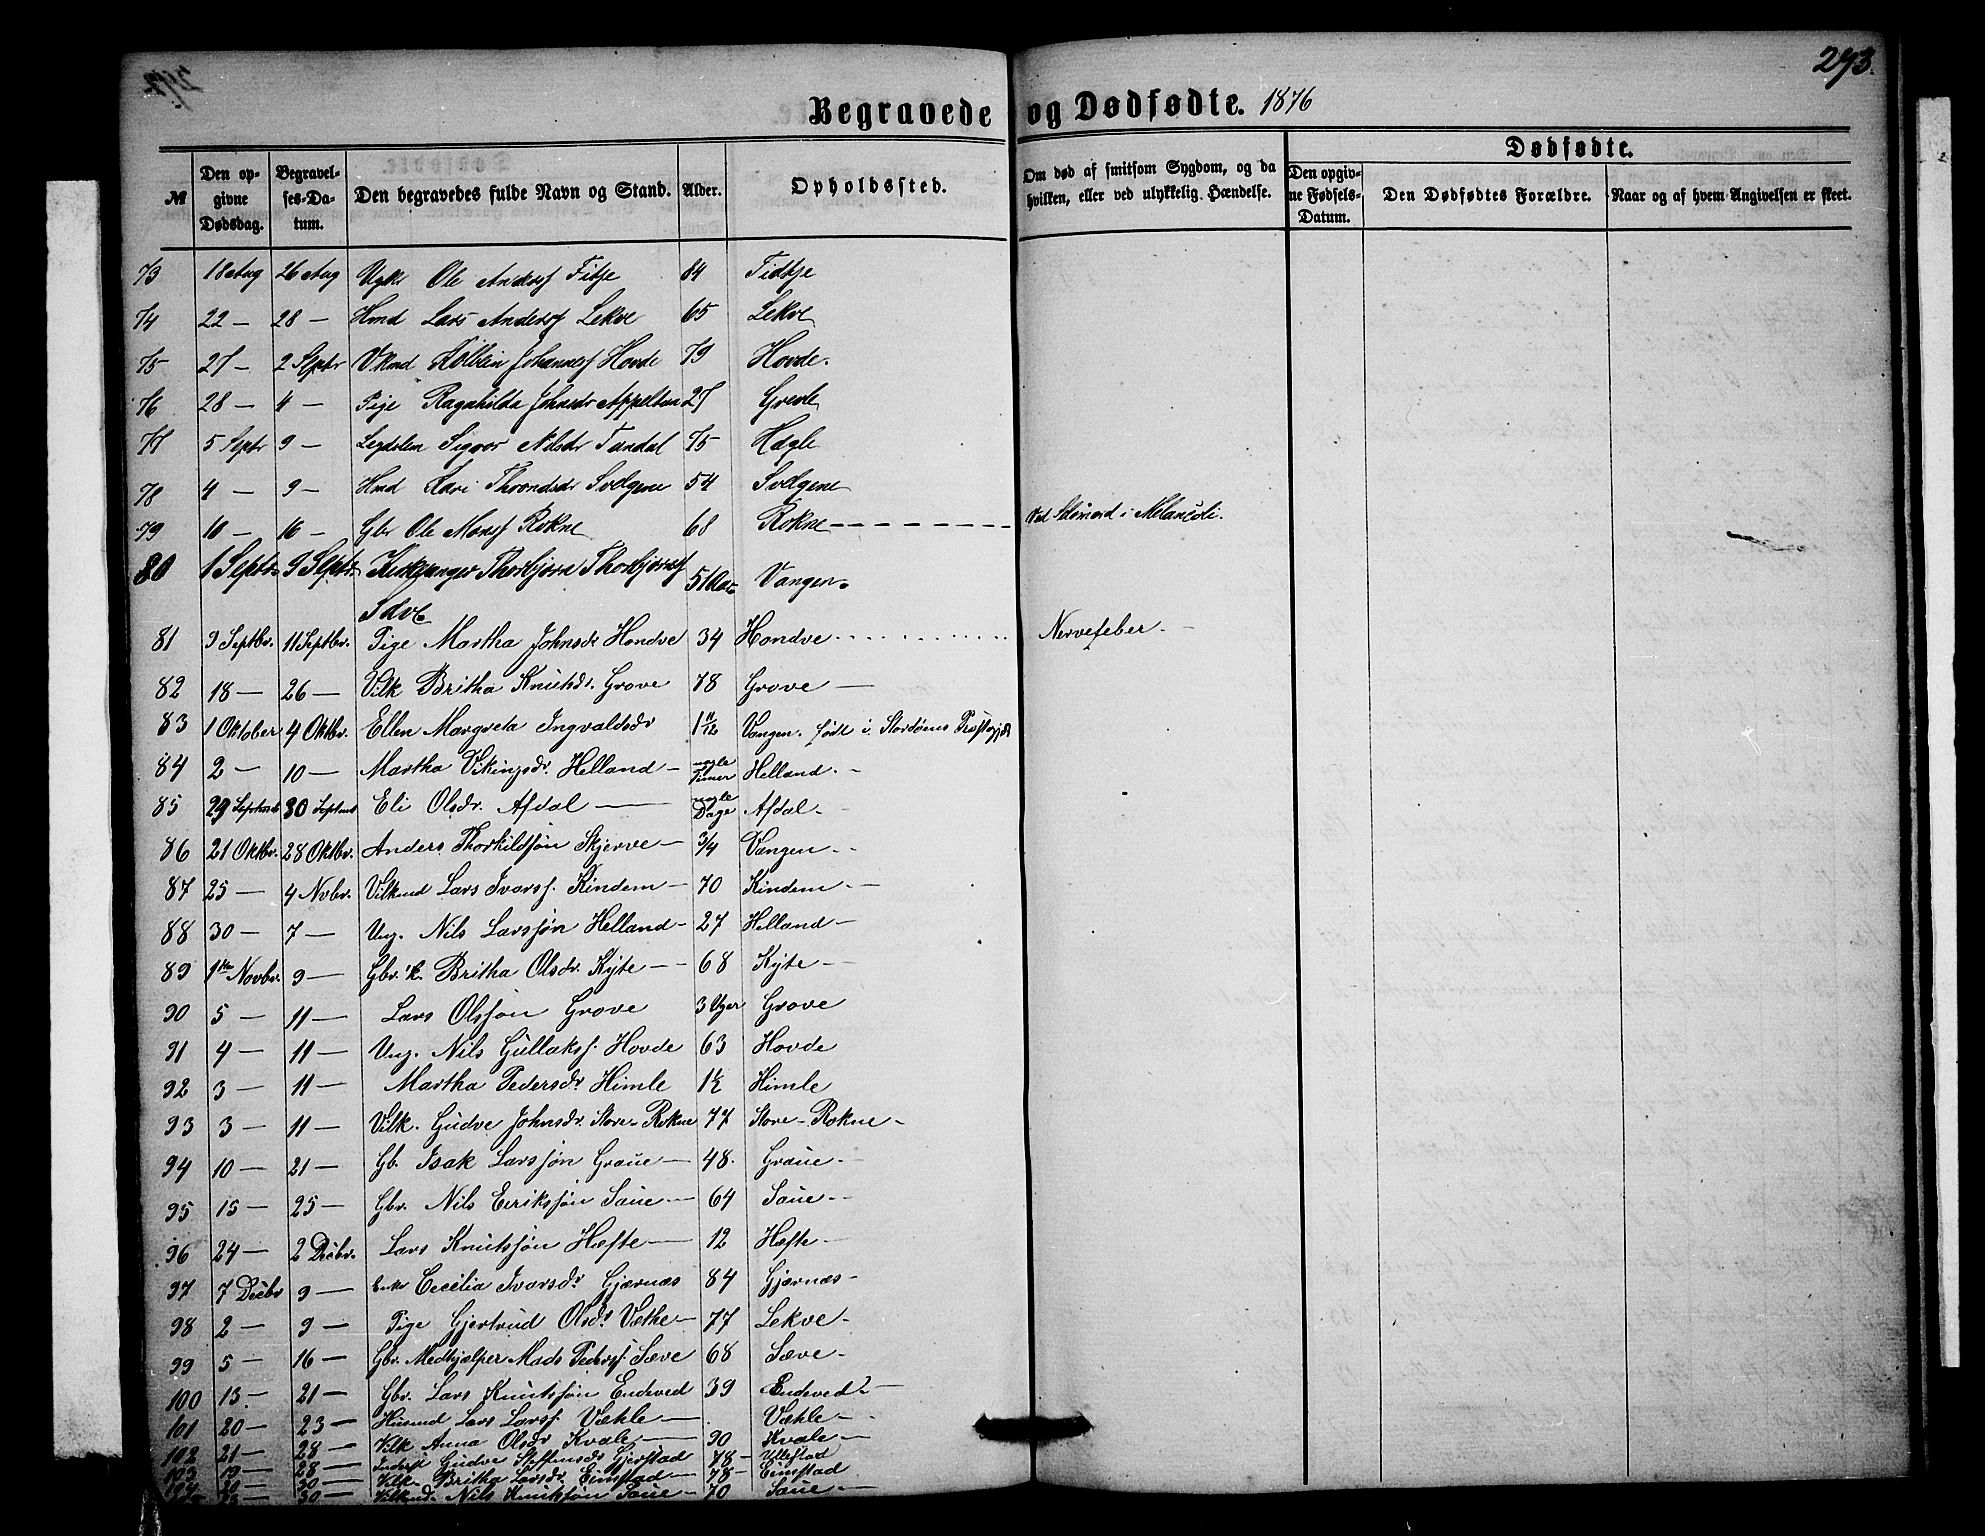 293.
Begravede og Dødfødte. 1876
Dødfødte.
№ Den opgivne Dødsdag. Begravelses-Datum. Den begravedes fulde Navn og Stand. Alder. Opholdssted. Om død af smitsom Sygdom, og da hvilken, eller ved ulykkelig Hændelse. Den opgivne Fødsels-Datum. Den Dødfødtes Forældre. Naar og af hvem Angivelsen er skeet.
73 18 Aug 26 Aug Ole Anders Fitje 84
74 22 — 28 — Hmd Lars Anders Lekve 65 Lekve
75 27 — 2 Septr Johannes Hovde 79 Hovde.
76 28 — 4 — Pige Ragnhilda Johnsdr 27
77 5 Septr 9 — Nilsdr 75 Hægle
78 4 — 9 — Hmd Kari 54
79 10 — 16 — Gbr Ole Mons Rokne 68 Rokne — — — Ved Selvmord i Melancoli.
80 1 Septr 9 Septr Kirkesanger Thorbjørn Thorbjørns 51 Aar Vangen.
81 9 Septbr. 11 Septbr. Pige Martha Johnsdr Hondve 34 Hondve . . . . Nervefeber. —
82 18 — 26 — Vilk Britha Knutsdr. Grove 78 Grove —
83 1 Oktober 4 Oktbr. Ellen Margreta Ingvaldsdr 1 11/12 Vangen. født i Stordøens Præstegjd
84 2 — 10 — Martha Vikingsdr. Helland — nogle Timer Helland. —
85 29 Septembr 30 Septembr Eli Olsdr. Afdal — nogle Dage Afdal —
86 21 Oktbr. 28 Oktbr. Anders Thorkildsøn Skjerve — 3/4 Vangen —
87 25 — 4 Novbr. Vilkmd Lars Ivars. Kindem — 70 Kindem —
88 30 — 7 — Ung. Nils Larsøn Helland — 27 Helland —
89 1ste Novbr. 9 — Gbr.k. Britha Olsdr. Kyte — 68 Kyte —
90 5 — 11 — Lars Olsøn Grove 3 Uger Grove
91 4 — 11 — Ung. Nils Gullaks. Hovde 63 Hovde
92 3 — 11 — Martha Pedersdr Himle 1½ Himle
93 3 — 11 — Vilk. Gudve Johnsdr. Store-Rokne 77 Store-Rokne —
94 10 — 21 — Gb. Isak Larsøn Graue — 48. Graue —
95 15 — 25 — Gbr. Nils Eeriksøn Saue — 64 Saue —
96 24 — 2 Decbr. Lars Knutsøn Hæfte — 12 Hæfte —
97 7 Decbr 9 — Enke Cecilia Ivarsdr Gjærnæs 84 Gjærnæs —
98 2 — 9 — Pige Gjertrud Olsdr Væthe — 77 Lekve —
99 5 — 16 — Gbr. Medhjælper Mads Peders. Sæve 68 Sæve —
100 13 — 21 — Gbr. Lars Knutsøn Endeved 39 Endeved? —
101 20 — 23 — Husmd Lars Lars. Væhle — Væhle —
102 21 — 28 — Vilk Anna Olsdr Kvale — 90 Kvale —
103 19 — 28 — Gudve Steffensdr Gjerstad 78 — Ullestad
Vilk Britha Larsdr. Eimstad — 78 — Eimstad
30 — Vilkmd. Nils Knutsøn Saue — 70 Saue —